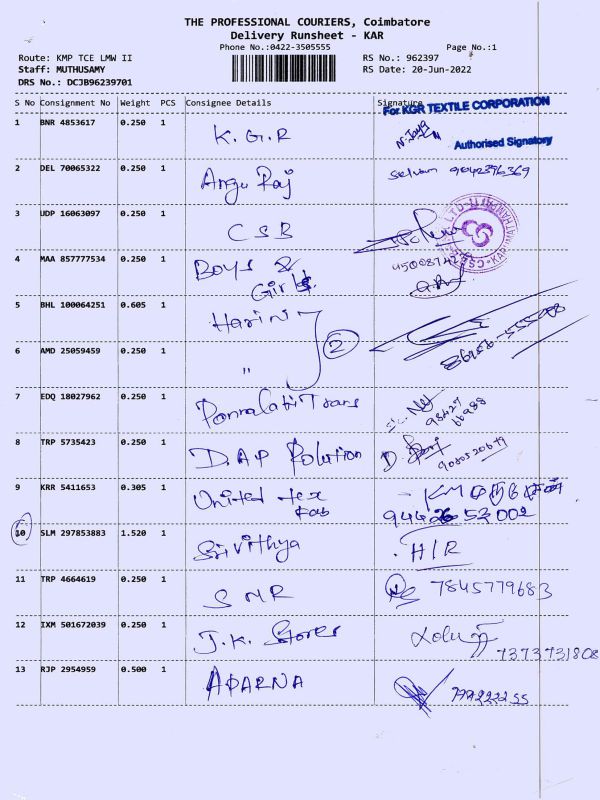 THE PROFESSIONAL COURIERS, Coimbatore
Delivery Runsheet - KAR
Phone No.:0422-3505555
Page No.:1
Route: KMP TCE LMW II
RS No.: 962397
Staff: MUTHUSAMY
RS Date: 20-Jun-2022
DRS No.: DCJB96239701
S No Consignment No Weight PCS Consignee Details Signature
For KGR TEXTILE CORPORATION
Authorised Signatory
1 BNR 4853617 0.250 1 K.G.R
2 DEL 70065322 0.250 1 Angu Raj Selvam 9042376369
3 UDP 16063097 0.250 1 C S B
4 MAA 857777534 0.250 1 Boys &
Girls
5 BHL 100064251 0.605 1 Harini
2
6 AMD 25059459 0.250 1 "
7 EDQ 18027962 0.250 1 Trans 98427
66988
8 TRP 5735423 0.250 1 D.A.P Solution D.
9 KRR 5411653 0.305 1 United tex
Fab
10 SLM 297853883 1.520 1 Srivithya H/R
11 TRP 4664619 0.250 1 S N R 7845779683
12 IXM 501672039 0.250 1 J.K. Stores
7373731808
13 RJP 2954959 0.500 1 APARNA